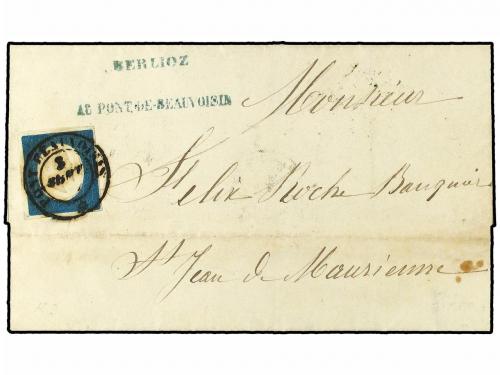 BERLIOZ
AU PONT-DE-BEAUVOISIN
Monsieur
PONT BEAUVOISIN
3
Felix Roche Banquier
St Jean de Maurienne